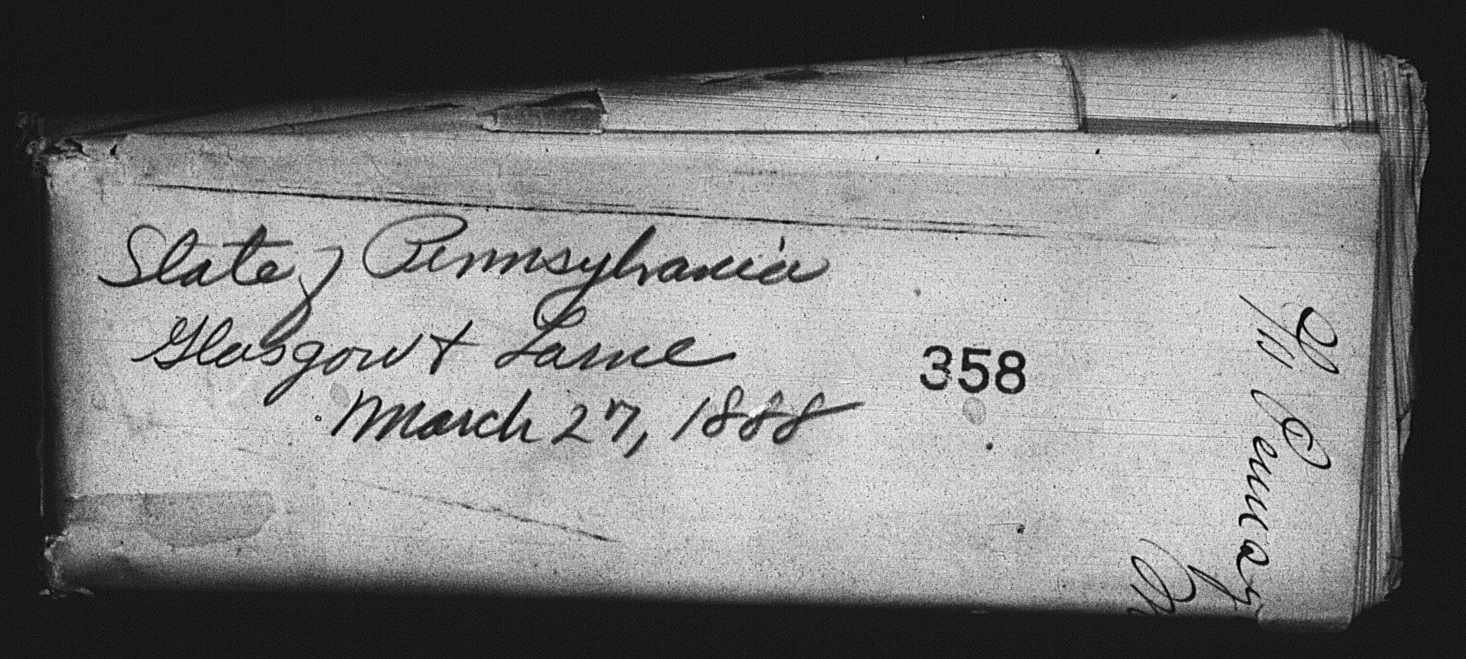 State of Pennsylvania
Glasgow & Larne
March 27, 1888
358